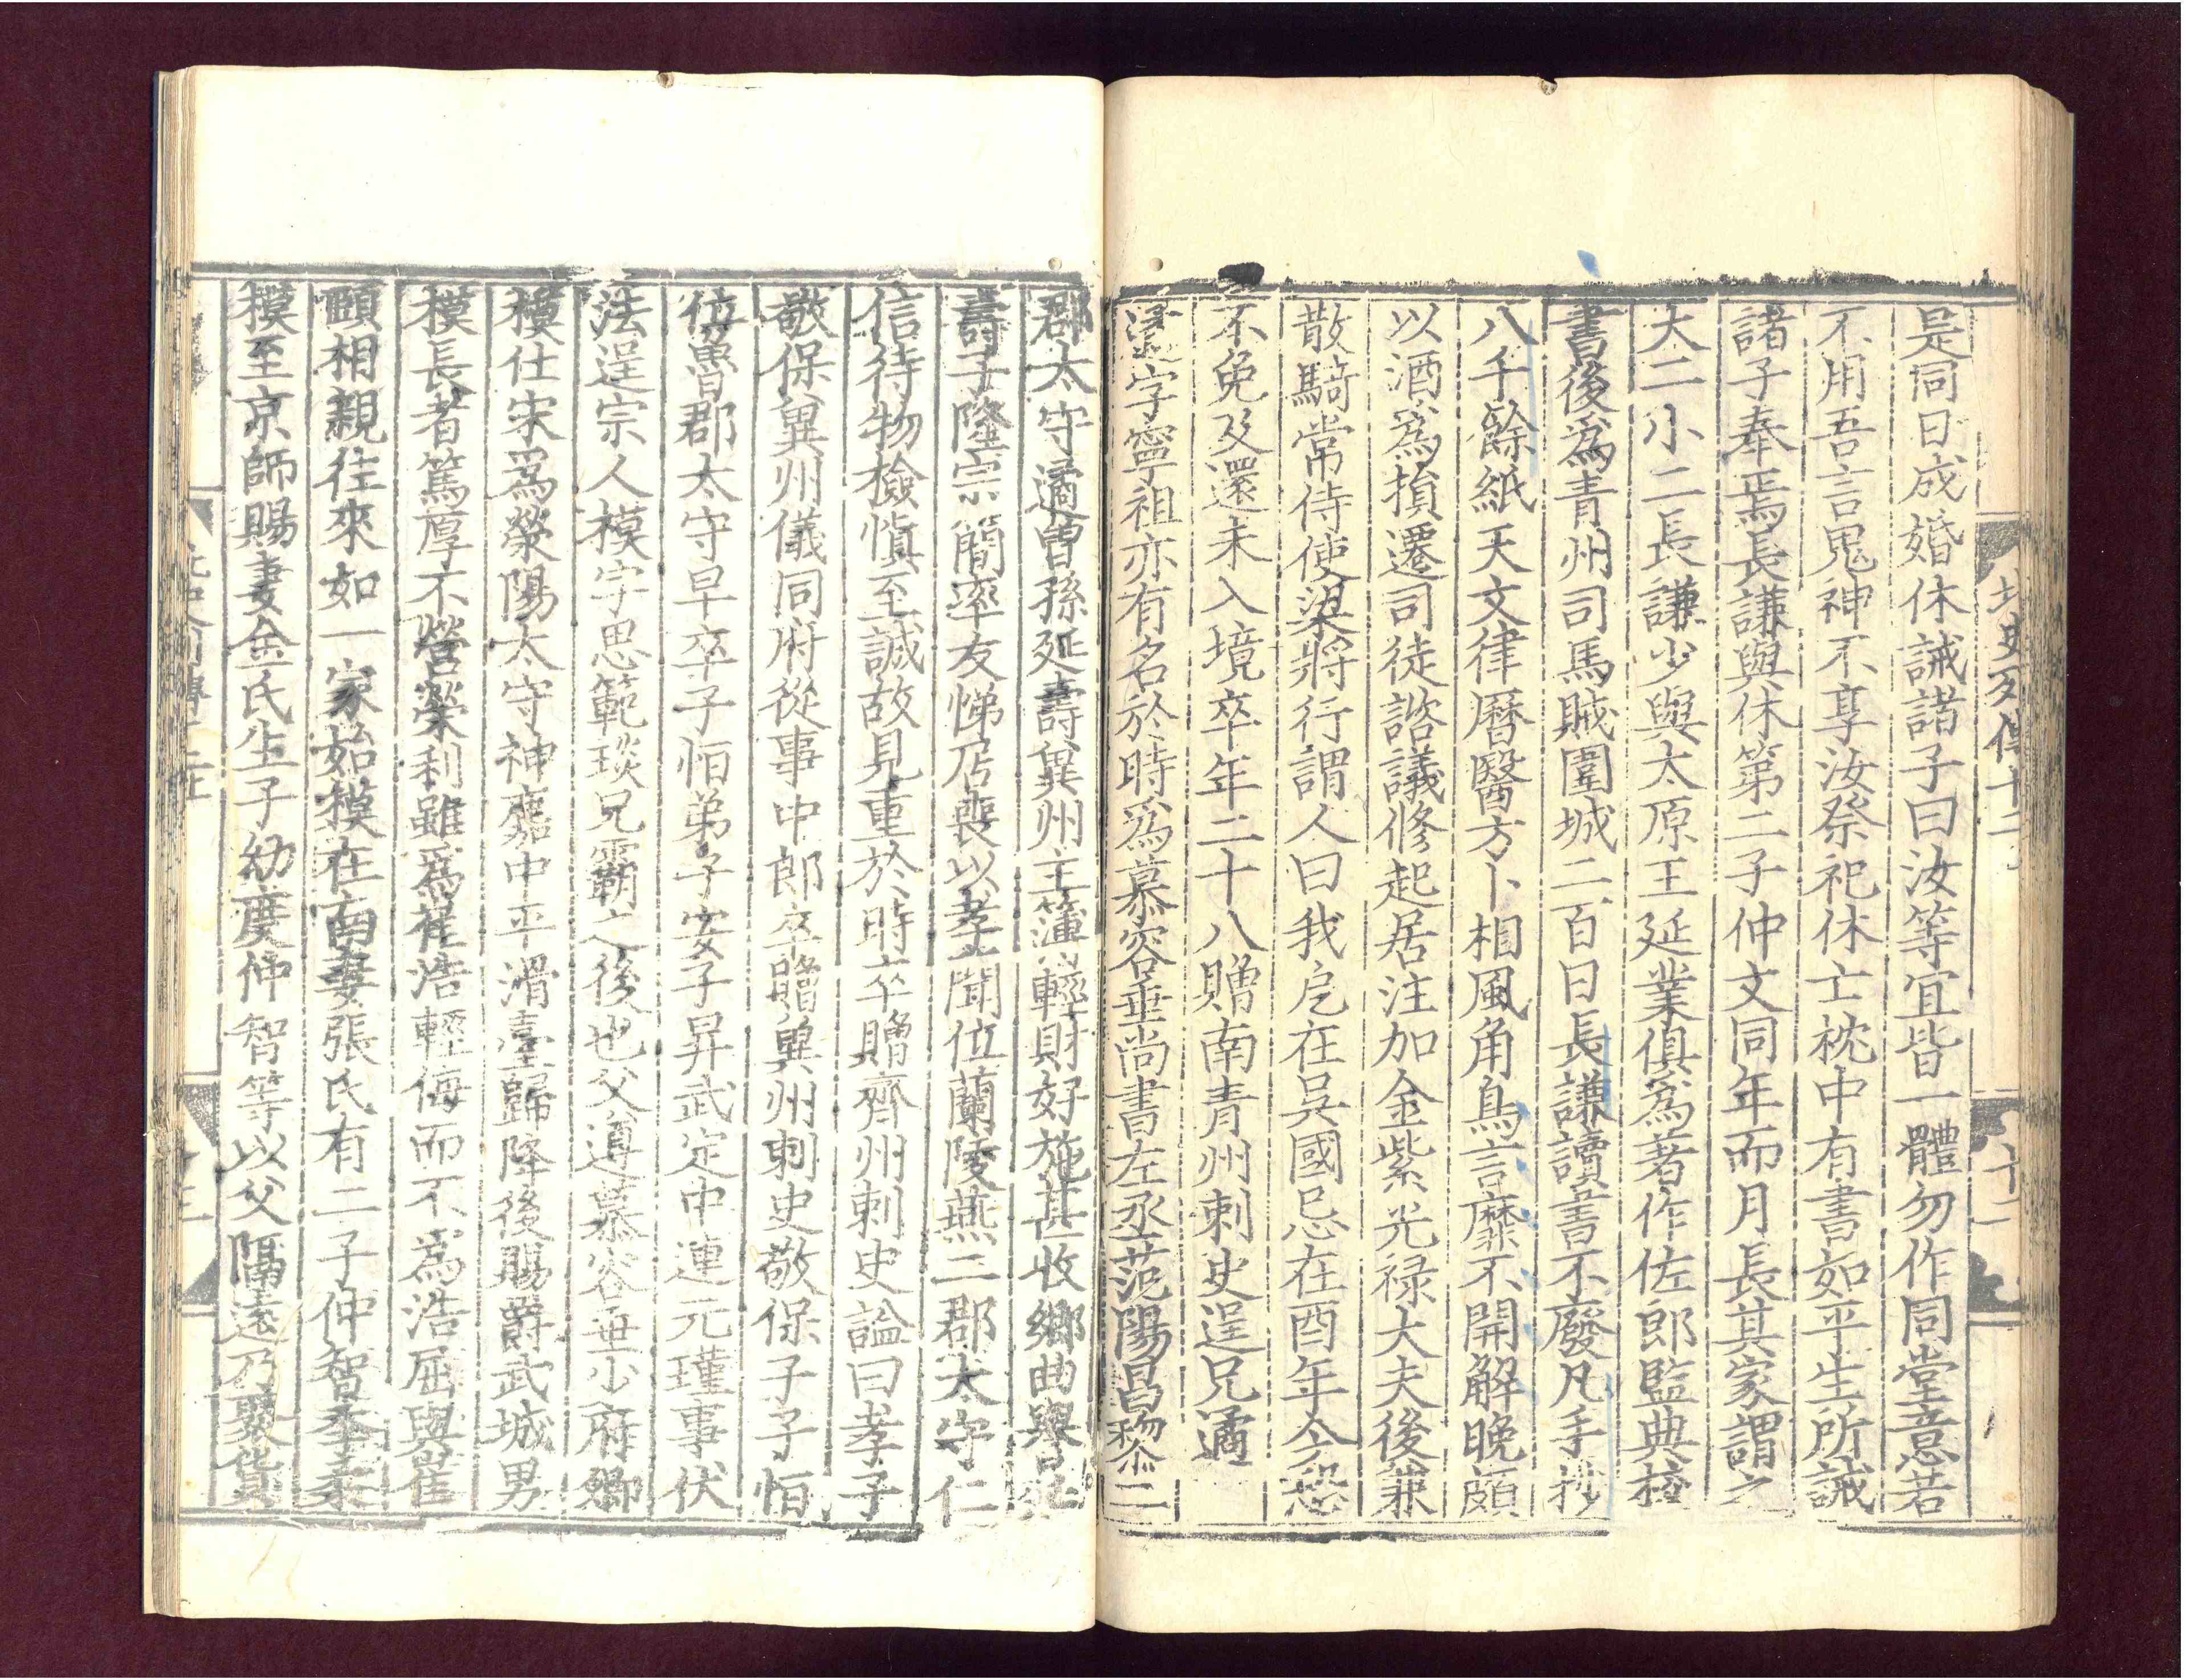 是同日成婚休誡諸子曰汝等宜皆一體勿作同堂意若
不用吾言鬼神不享汝祭祀休亡枕中有書如平生所誡
諸子奉焉長謙與休第二子仲文同年而月長其家謂之
大二小二長謙少與太原王延業俱爲著作佐郎監典挍
書後爲青州司馬賊圍城二百日長謙讀書不廢凡手抄
八千餘紙天文律曆醫方卜相風角鳥言靡不開解晚頗
以酒爲損遷司徒諮議修起居注加金紫光禄大夫後兼
散騎常侍使梁將行謂人曰我厄在吳國忌在酉年今恐
不免及還未入境卒年二十八贈南青州刺史逞兄遹
字寧祖亦有名於時爲慕容垂尚書左丞范陽昌黎二
郡太守遹曾孫延壽兾州主簿輕財好施甚收鄉曲譽延
壽子隆宗簡率友悌居喪以孝聞位蘭陵燕二郡太守仁
信待物檢慎至誠故見重於時卒贈齊州刺史謚曰孝子
敬保兾州儀同府從事中郎卒贈兾州刺史敬保子子恒
位魯郡太守早卒子恒弟子安子昇武定中連元瑾事伏
法逞宗人模字思範琰兄霸之後也父遵慕容垂少府卿
模仕宋爲滎陽太守神䴥中平滑臺歸降後賜爵武城男
模長者篤厚不營榮利雖爲崔浩輕侮而不爲浩屈與崔
頤相親往來如一家始模在南妻張氏有二子仲智季柔
模至京師賜妻金氏生子幼度仲智等以父隔遠乃聚貨
北史列傳十二
十二